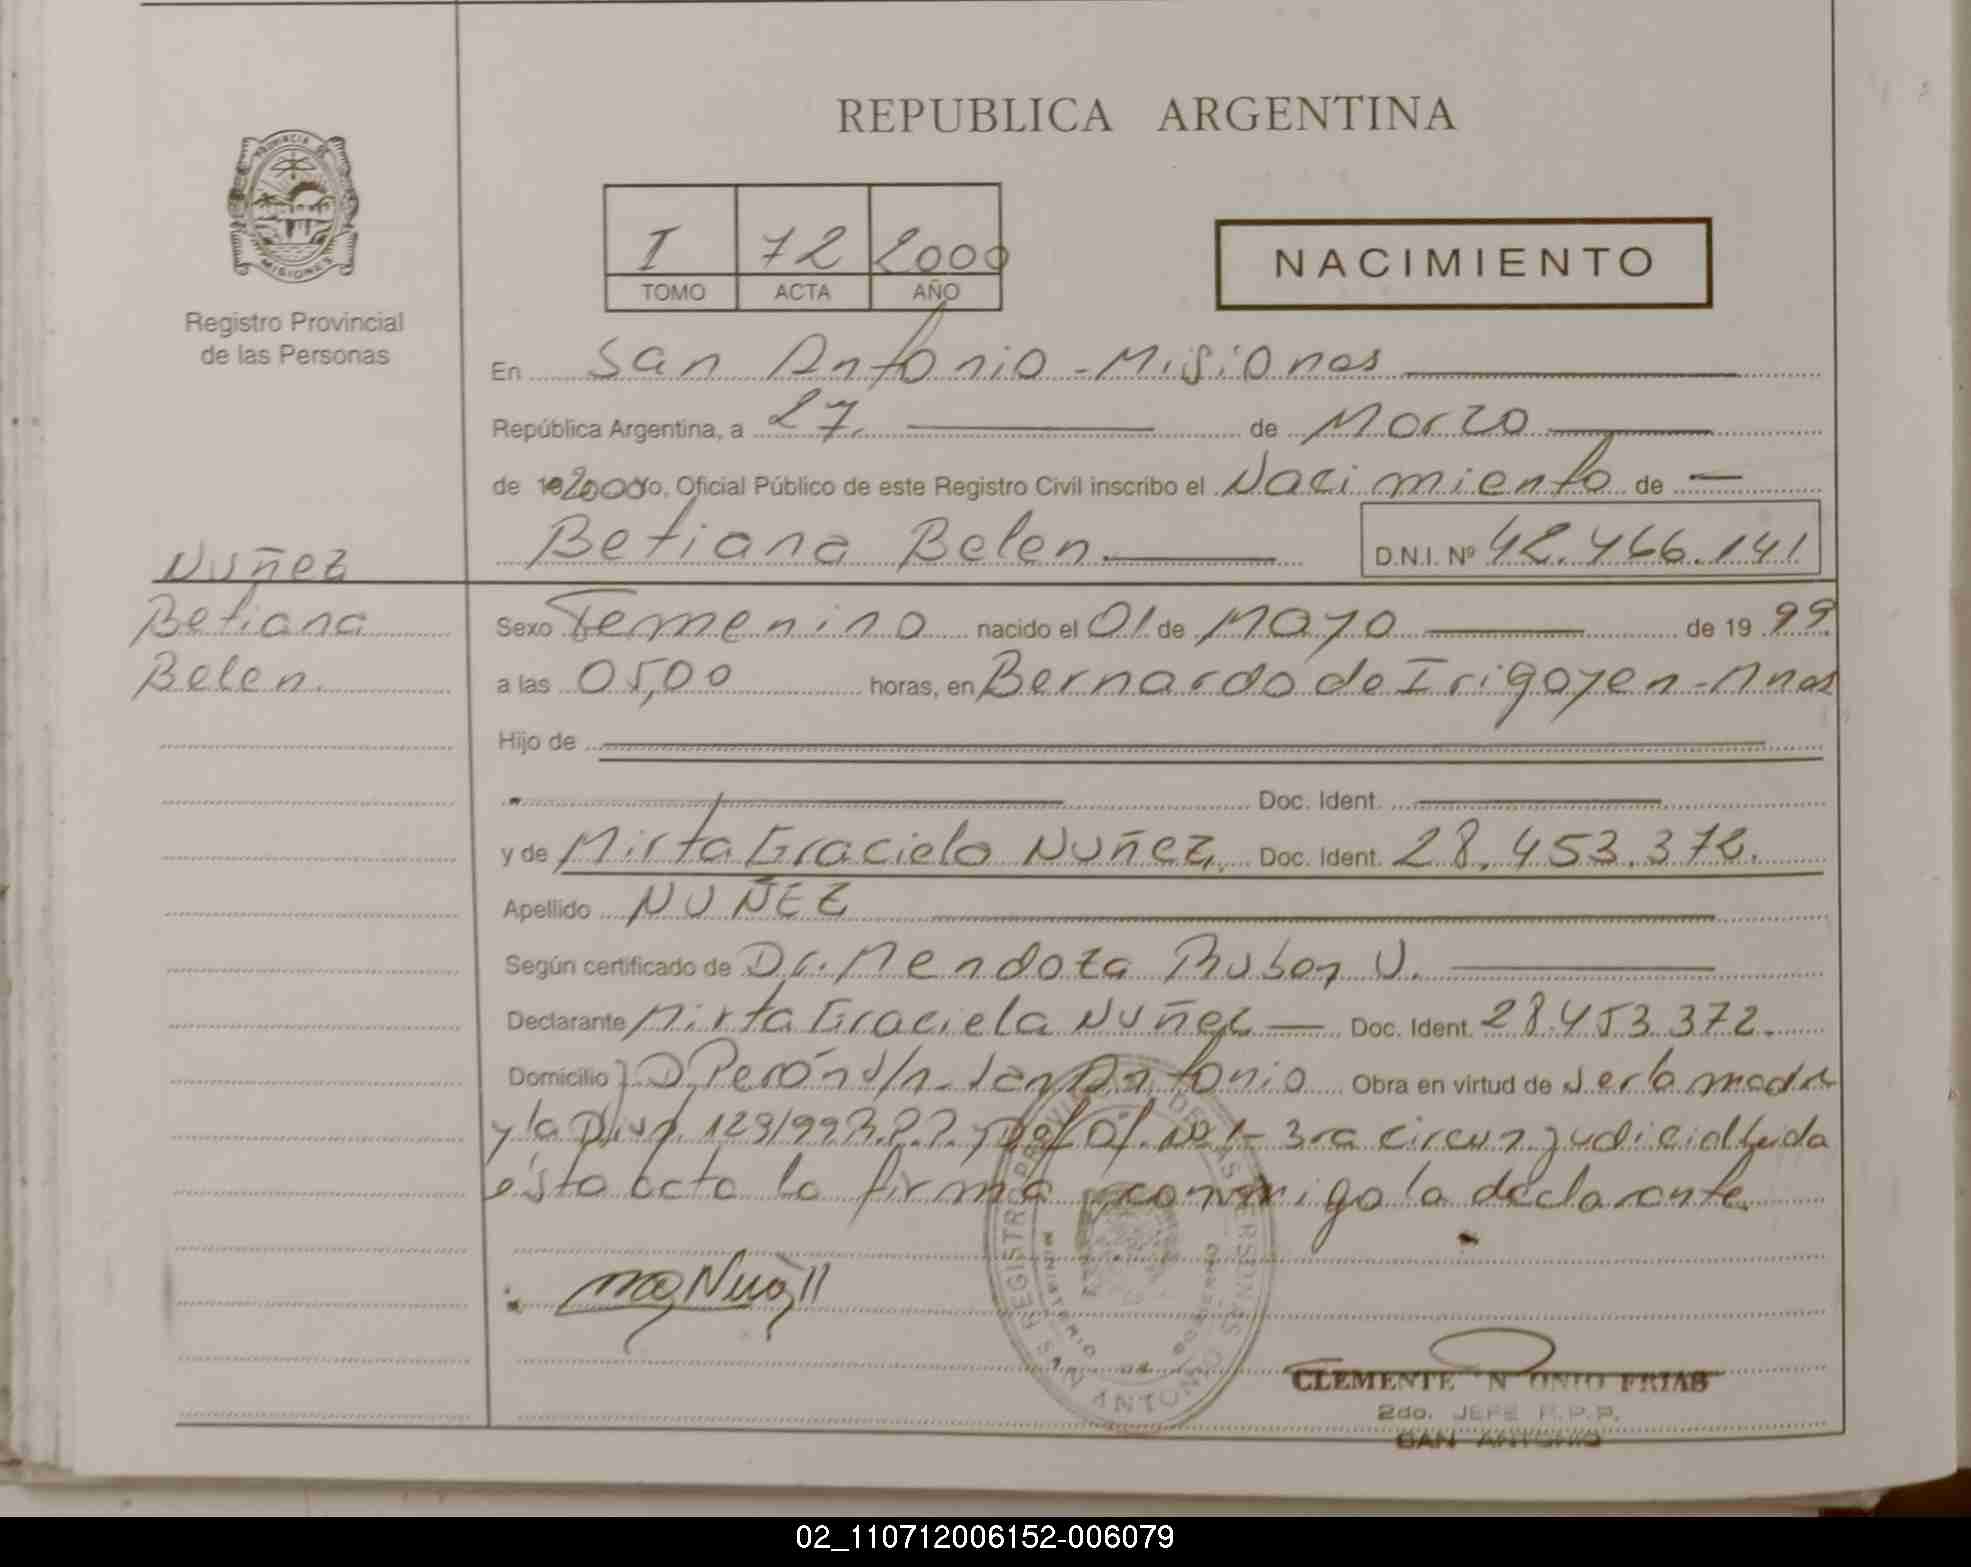 REPUBLICA ARGENTINA
PROVINCIA DE
MISIONES
Registro Provincial
de las Personas
I 72 2000
TOMO ACTA AÑO
NACIMIENTO
En San Antonio - Misiones
República Argentina, a 27 de Marzo
de 2000 yo, Oficial Público de este Registro Civil inscribo el Nacimiento de
Betiana Belen. D.N.I. Nº 42.466.141
Nuñez
Betiana
Belen.
Sexo Femenino nacido el 01 de Mayo de 19 99
a las 05,00 horas, en Bernardo de Irigoyen - Mnes
Hijo de
Doc. Ident.
y de Mirta Graciela Nuñez. Doc. Ident. 28.453.372.
Apellido NUÑEZ
Según certificado de Dr. Mendoza Ruben U.
Declarante Mirta Graciela Nuñez Doc. Ident. 28.453.372.
Domicilio J D Perón s/n - San Antonio Obra en virtud de ser la madre
y la Disp. 129/99 R.P.P. y Def. Of. No 1 - 3ra circun judicial leida
ésta acta la firma conmigo la declarante
REGISTRO PROVINCIAL DE LAS PERSONAS
MINISTERIO DE GOBIERNO
SAN ANTONIO
CLEMENTE ONIO FRIAS
2do. JEFE R.P.P.
SAN ANTONIO
02_110712006152-006079